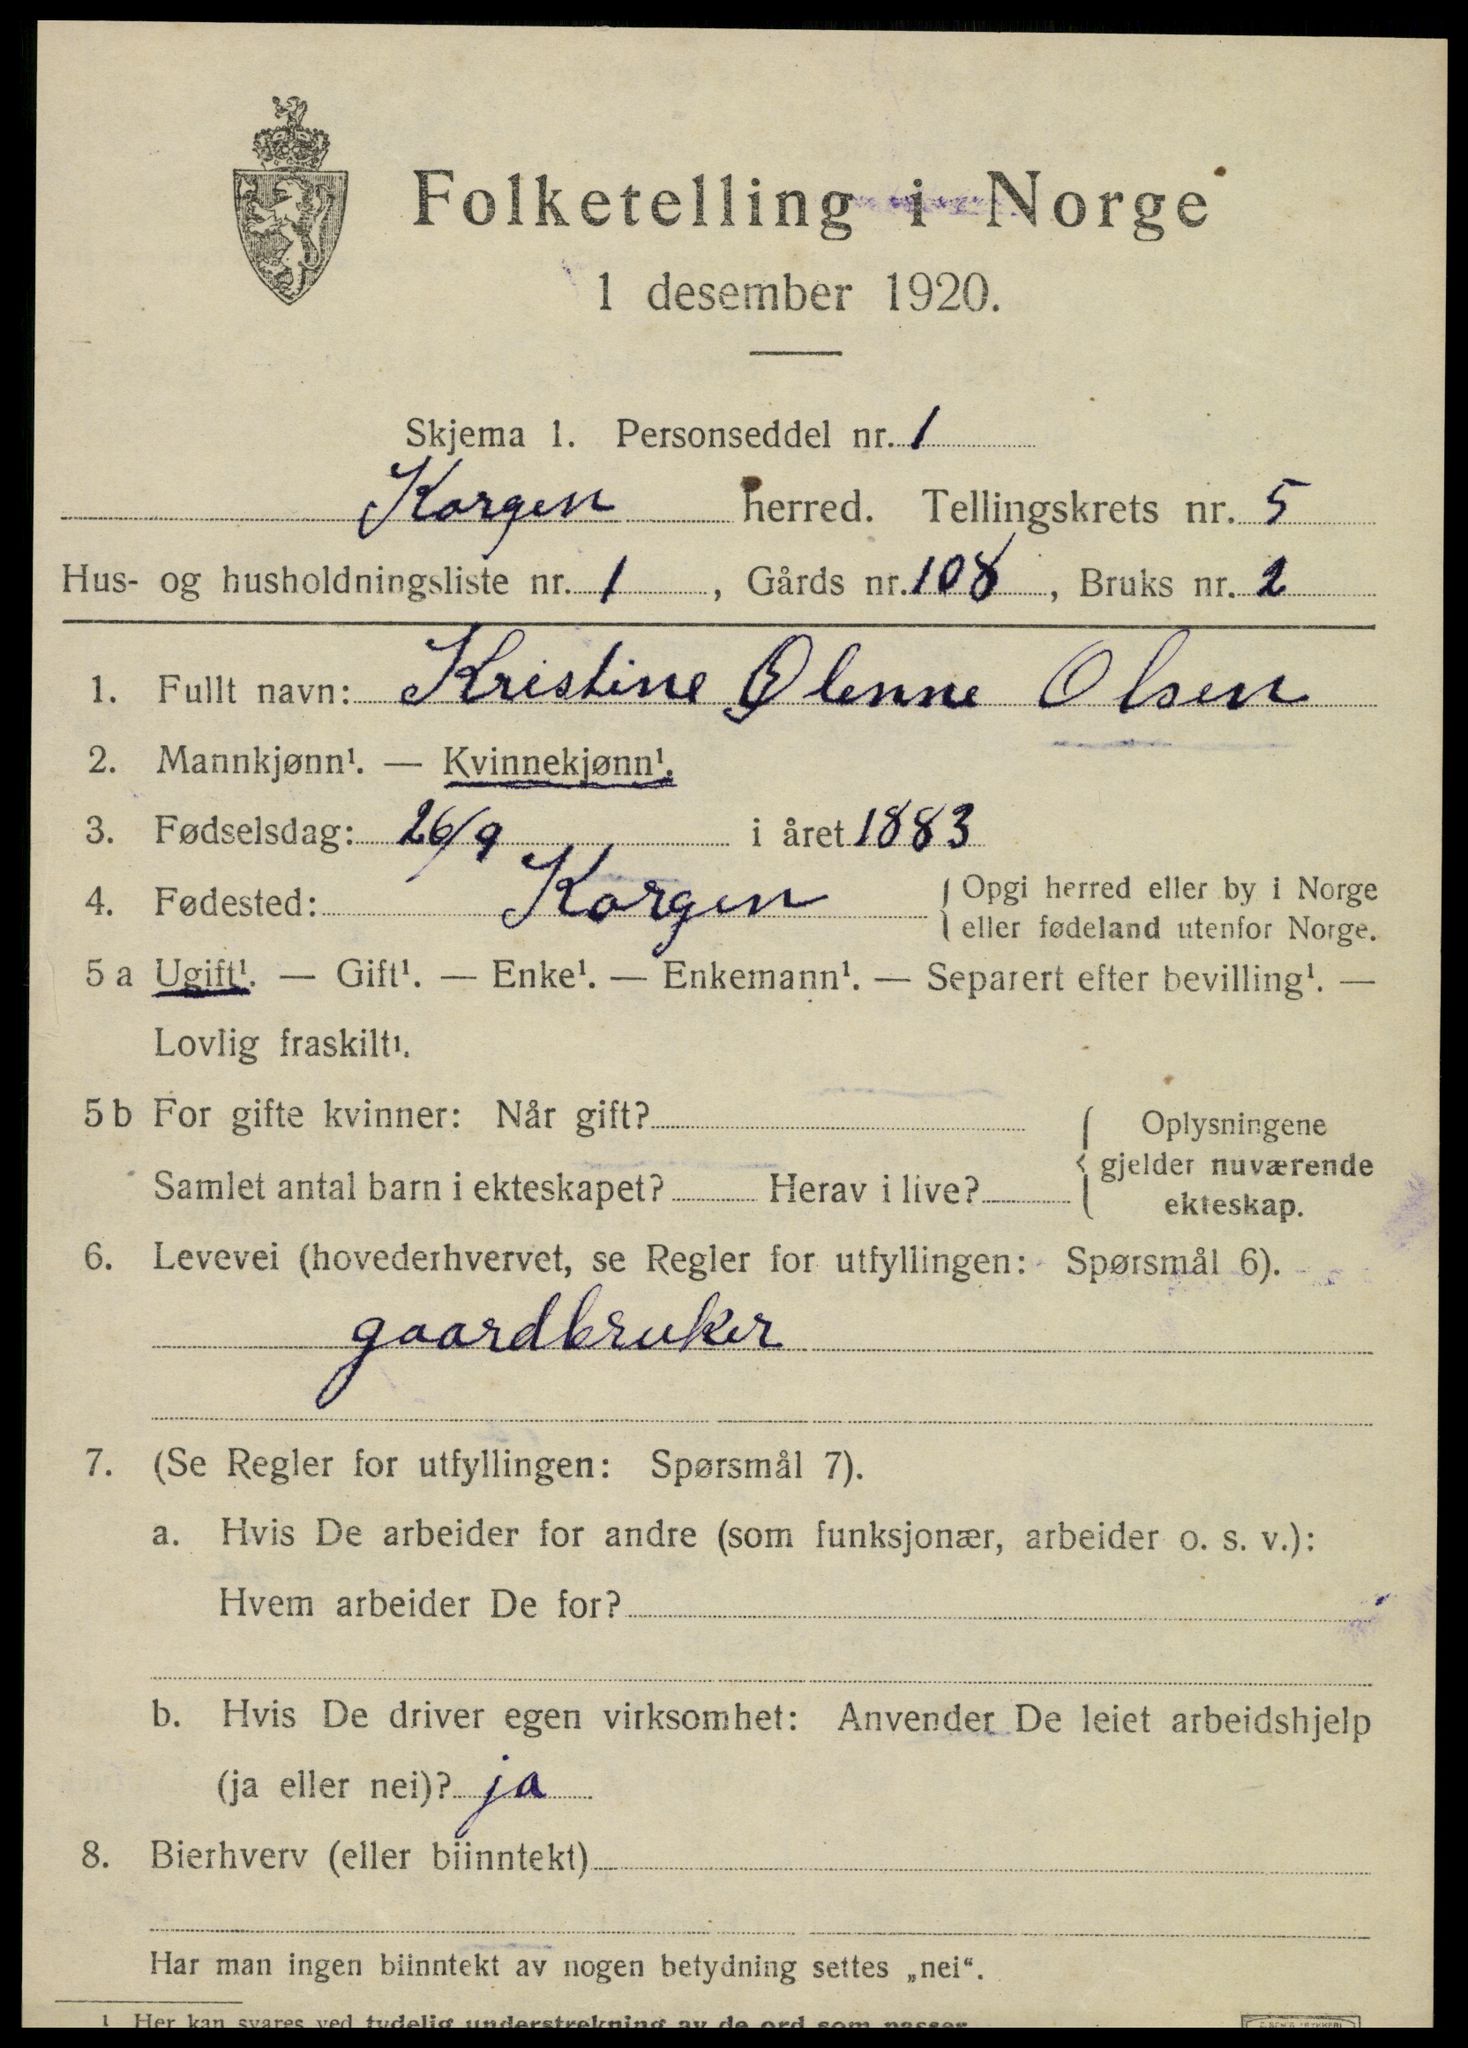 Folketelling i Norge
1 desember 1920.
Skjema 1. Personseddel nr. 1
Korgen herred. Tellingskrets nr. 5
Hus- og husholdningsliste nr. 1, Gårds nr. 108, Bruks nr. 2
1. Fullt navn: Kristine Olenne Olsen
2. Mannkjønn¹. — Kvinnekjønn¹.
3. Fødselsdag: 26/9 i året 1883
4. Fødested: Korgen { Opgi herred eller by i Norge
eller fødeland utenfor Norge.
5 a Ugift¹. — Gift¹. — Enke¹. — Enkemann¹. — Separert efter bevilling¹. —
Lovlig fraskilt¹.
5 b For gifte kvinner: Når gift?
Samlet antal barn i ekteskapet? Herav i live?
{ Oplysningene
gjelder nuværende
ekteskap.
6. Levevei (hovederhvervet, se Regler for utfyllingen: Spørsmål 6).
gaardbruker
7. (Se Regler for utfyllingen: Spørsmål 7).
a. Hvis De arbeider for andre (som funksjonær, arbeider o. s. v.):
Hvem arbeider De for?
b. Hvis De driver egen virksomhet: Anvender De leiet arbeidshjelp
(ja eller nei)? ja
8. Bierhverv (eller biinntekt)
Har man ingen biinntekt av nogen betydning settes „nei“.
1 Her kan svares ved tydelig understrekning av de ord som passer